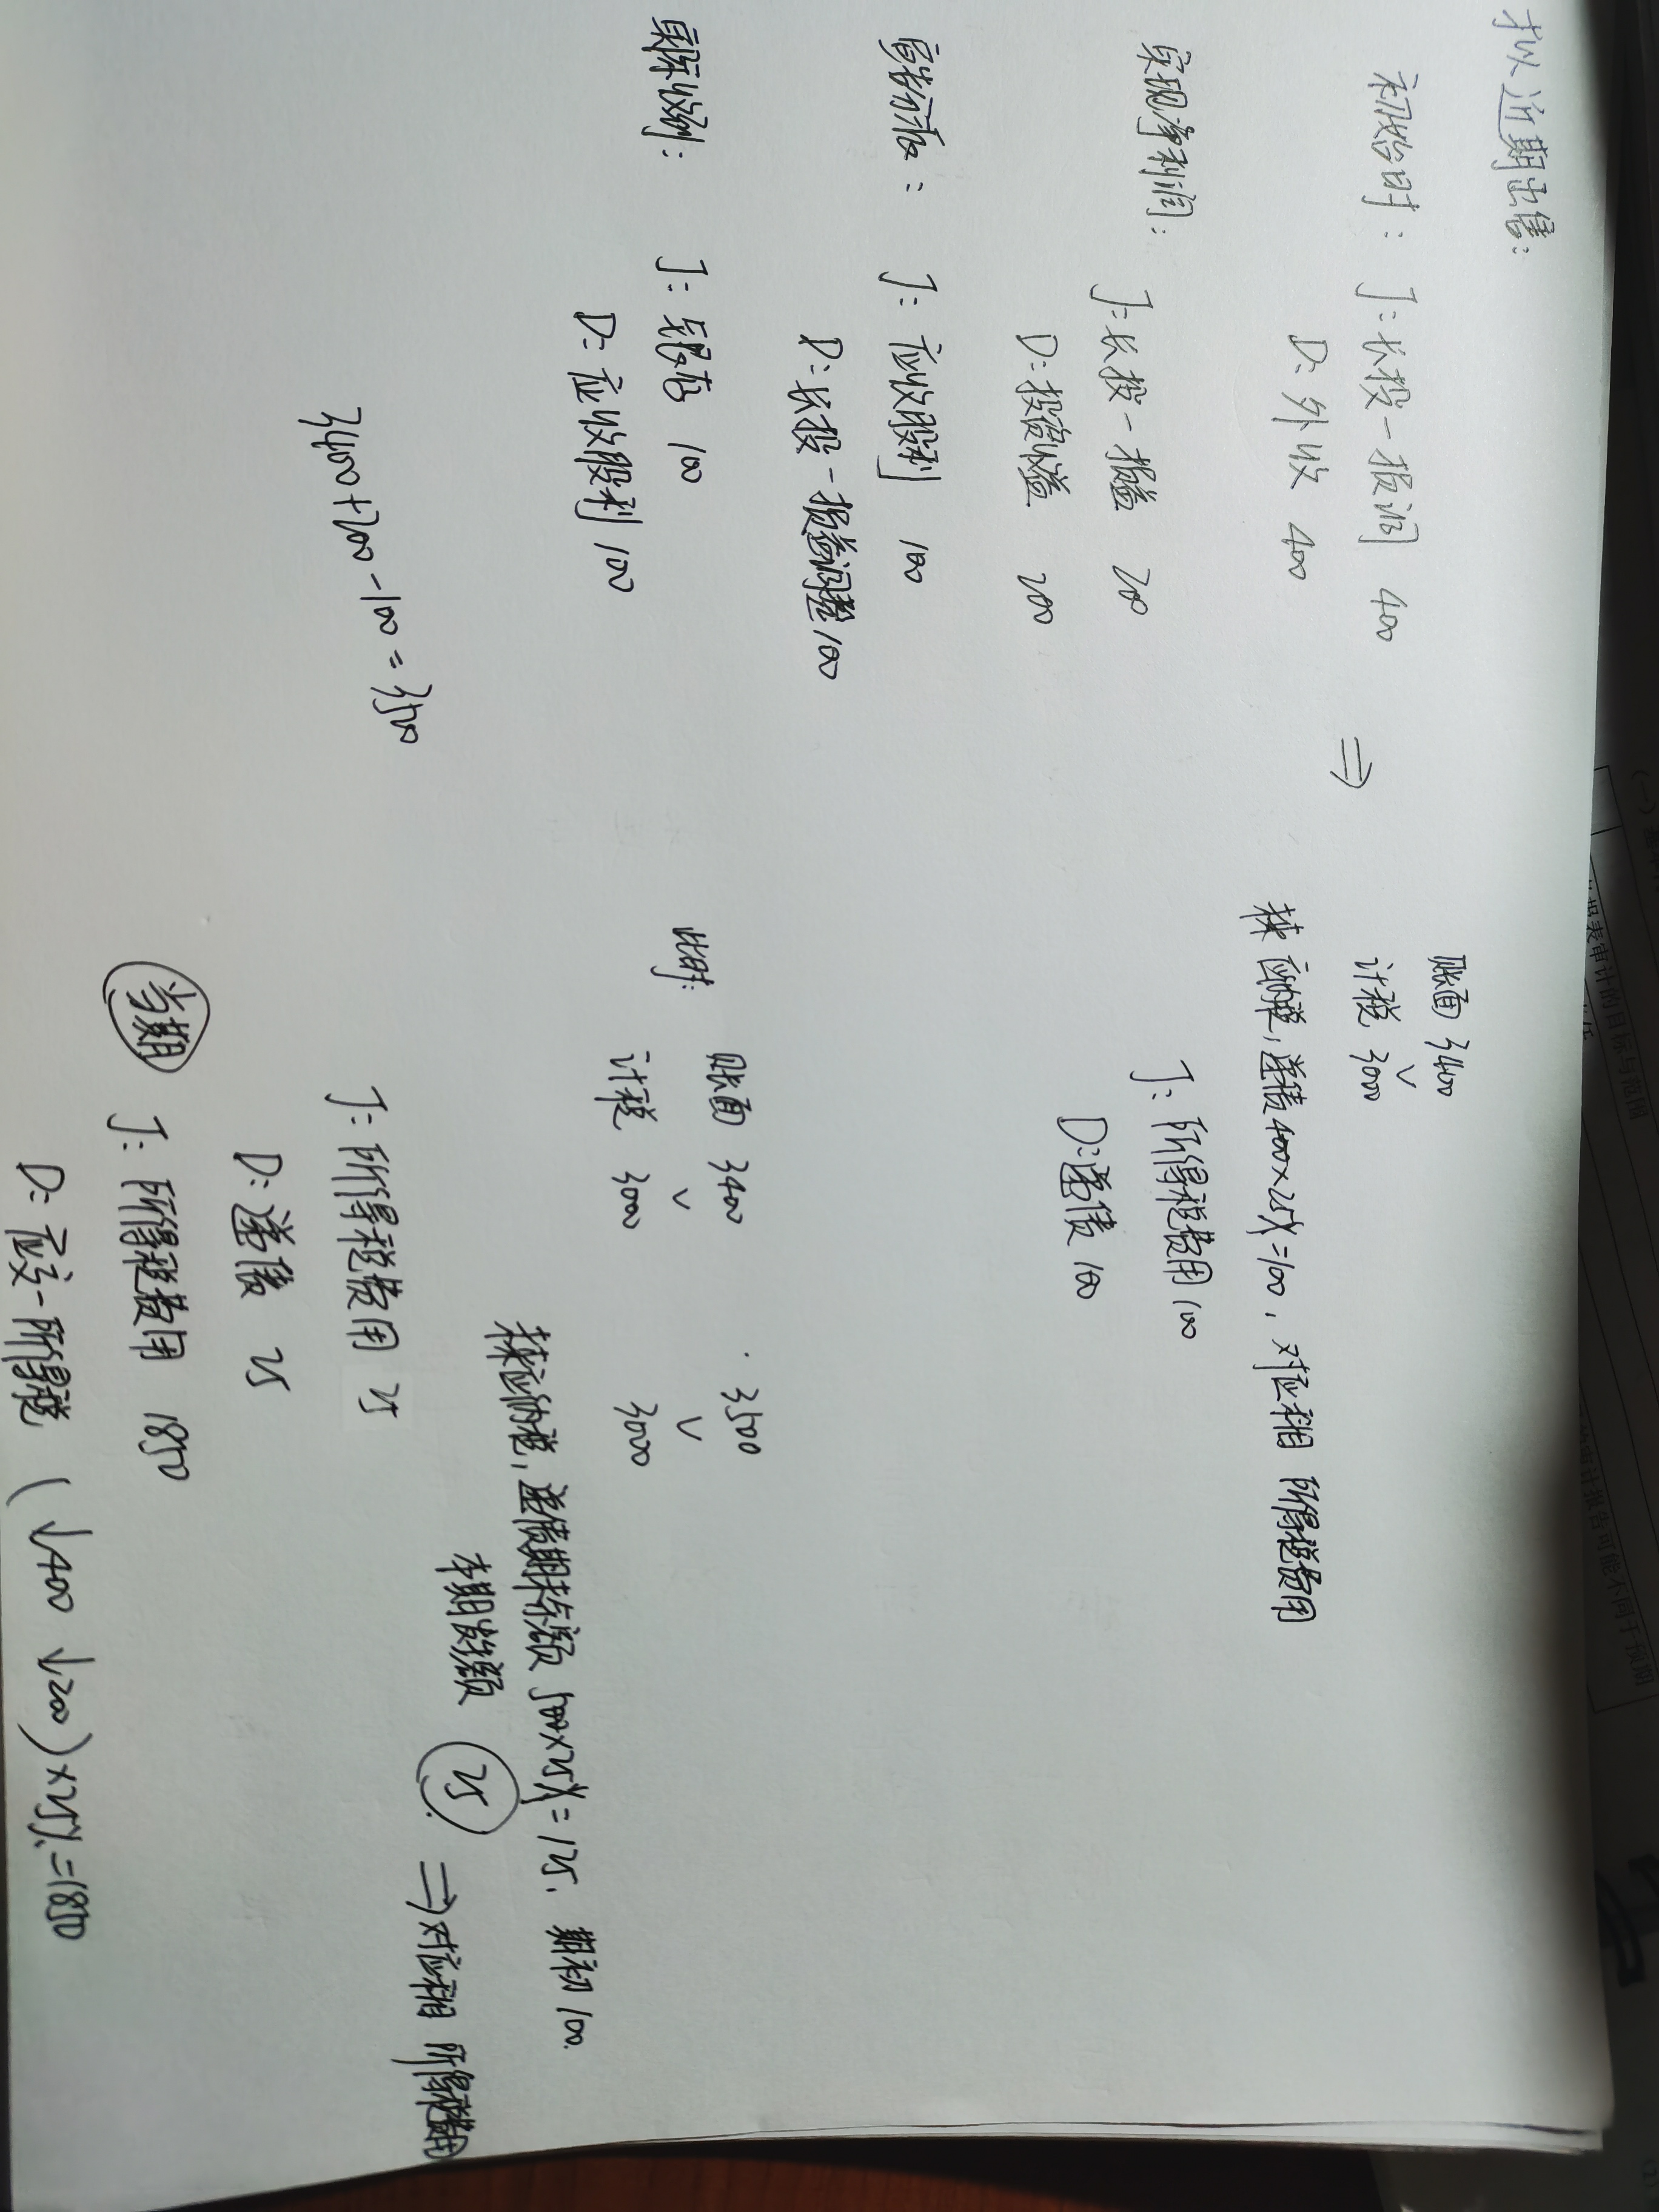 拟近期出售：
初始时： J：长投-损调 400 ⇒ 账面 3400
D：外收 400 计税 3000
应纳税，递债400×25%=100，对应科目 所得税费用
实现净利润： J：长投-损益 200 J：所得税费用 100
D：投资收益 200 D：递债 100
宣告分派： J：应收股利 100
D：长投-损益调整 100
实际收到： J：银存 100 此时： 账面 3400 3500
D：应收股利 100 计税 3000 3000
应纳税，递债期末余额 500×25%=125，期初100.
3400+200-100=3500 本期发生额 25 ⇒对应科目 所得税费用
J：所得税费用 25
D：递债 25
当期 J：所得税费用 1850
D：应交-所得税 (↓400 ↓200)×25%=1850
(一)
报表审计的目标与范围
责任
审计报告可能不同于预期